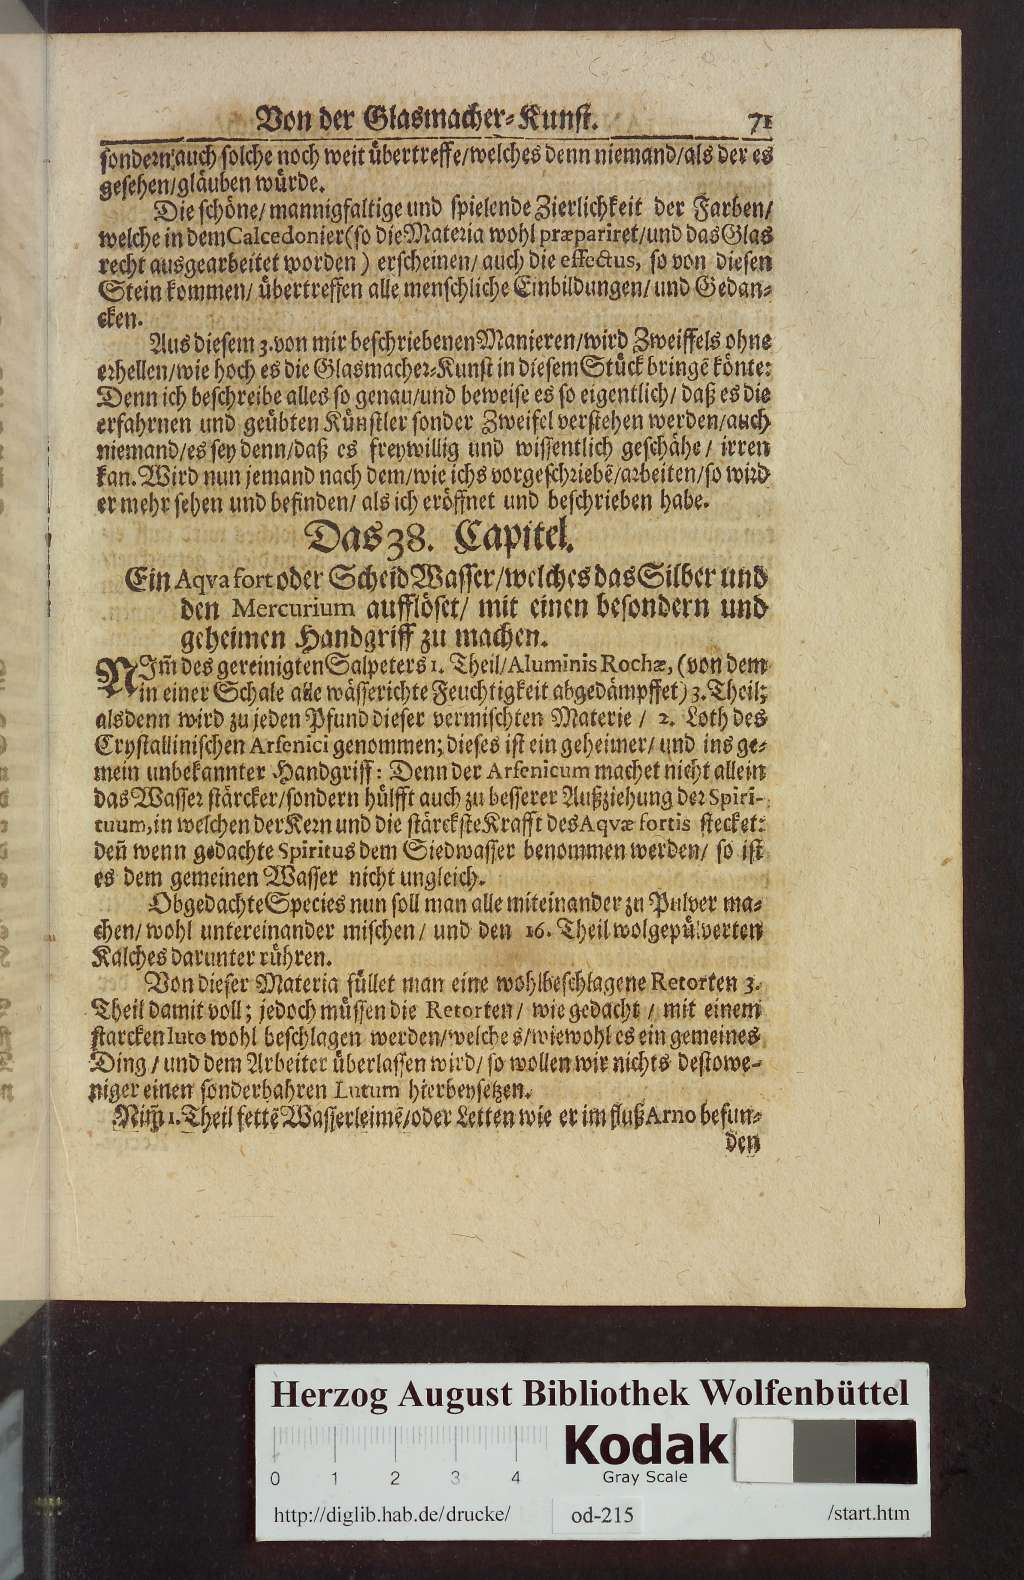 Von der Glasmacher-Kunst. 71
sondern auch solche noch weit übertreffe/welches denn niemand/als der es
gesehen/gläuben würde.
Die schöne/mannigfaltige und spielende Zierlichkeit der Farben/
welche in dem Calcedonier (so die Materia wohl præpariret/und das Glas
recht ausgearbeitet worden) erscheinen/auch die effectus, so von diesen
Stein kommen/ übertreffen alle menschliche Einbildungen/und Gedan-
cken.
Aus diesem 3. von mir beschriebenen Manieren/wird Zweiffels ohne
erhellen/wie hoch es die Glasmacher-Kunst in diesem Stück bringẽ könte:
Denn ich beschreibe alles so genau/und beweise es so eigentlich/ daß es die
erfahrnen und geübten Künstler sonder Zweifel verstehen werden/auch
niemand/es sey denn/daß es freywillig und wissentlich geschähe/ irren
kan. Wird nun jemand nach dem/wie ichs vorgeschriebẽ/arbeiten/so wird
er mehr sehen und befinden/ als ich eröffnet und beschrieben habe.
Das 38. Capitel.
Ein Aqva fort oder Scheid Wasser/welches das Silber und
den Mercurium aufflöset/ mit einen besondern und
geheimen Handgriff zu machen.
NIm̃ des gereinigten Salpeters 1. Theil/Aluminis Rochæ, (von dem
in einer Schale alle wässerichte Feuchtigkeit abgedämpffet) 3. Theil;
alsdenn wird zu jeden Pfund dieser vermischten Materie / 2. Loth des
Crystallinischen Arsenici genommen; dieses ist ein geheimer/ und ins ge-
mein unbekannter Handgriff: Denn der Arsenicum machet nicht allein
das Wasser stärcker/sondern hülfft auch zu besserer Außziehung der Spiri-
tuum, in welchen der Kern und die stärckste Krafft des Aqvæ fortis stecket:
deñ wenn gedachte Spiritus dem Siedwasser benommen werden/ so ist
es dem gemeinen Wasser nicht ungleich.
Obgedachte Species nun soll man alle miteinander zu Pulver ma-
chen/ wohl untereinander mischen/ und den 16. Theil wolgepülverten
Kalches darunter rühren.
Von dieser Materia füllet man eine wohlbeschlagene Retorten 3.
Theil damit voll; jedoch müssen die Retorten/ wie gedacht / mit einem
starcken luto wohl beschlagen werden/welches/wiewohl es ein gemeines
Ding / und dem Arbeiter überlassen wird/ so wollen wir nichts destowe-
niger einen sonderbahren Lutum hierbeysetzen.
Nim̃ 1. Theil fettẽ Wasserleimẽ/oder Letten wie er im fluß Arno befun-
den
Herzog August Bibliothek Wolfenbüttel
Kodak
Gray Scale
0 1 2 3 4
http://diglib.hab.de/drucke/ od-215 /start.htm